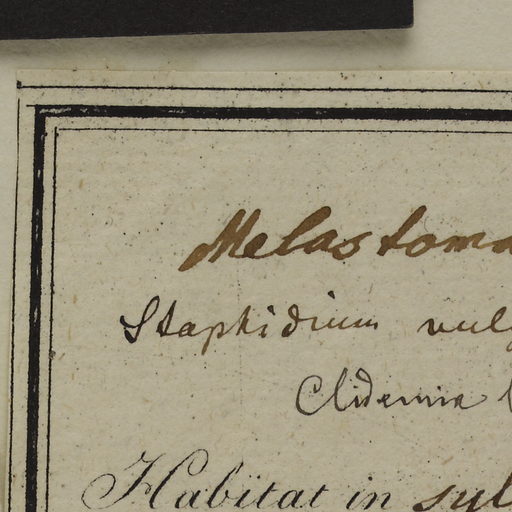 Melastoma
Staphidium vulg
Clidemia
Habitat in syl